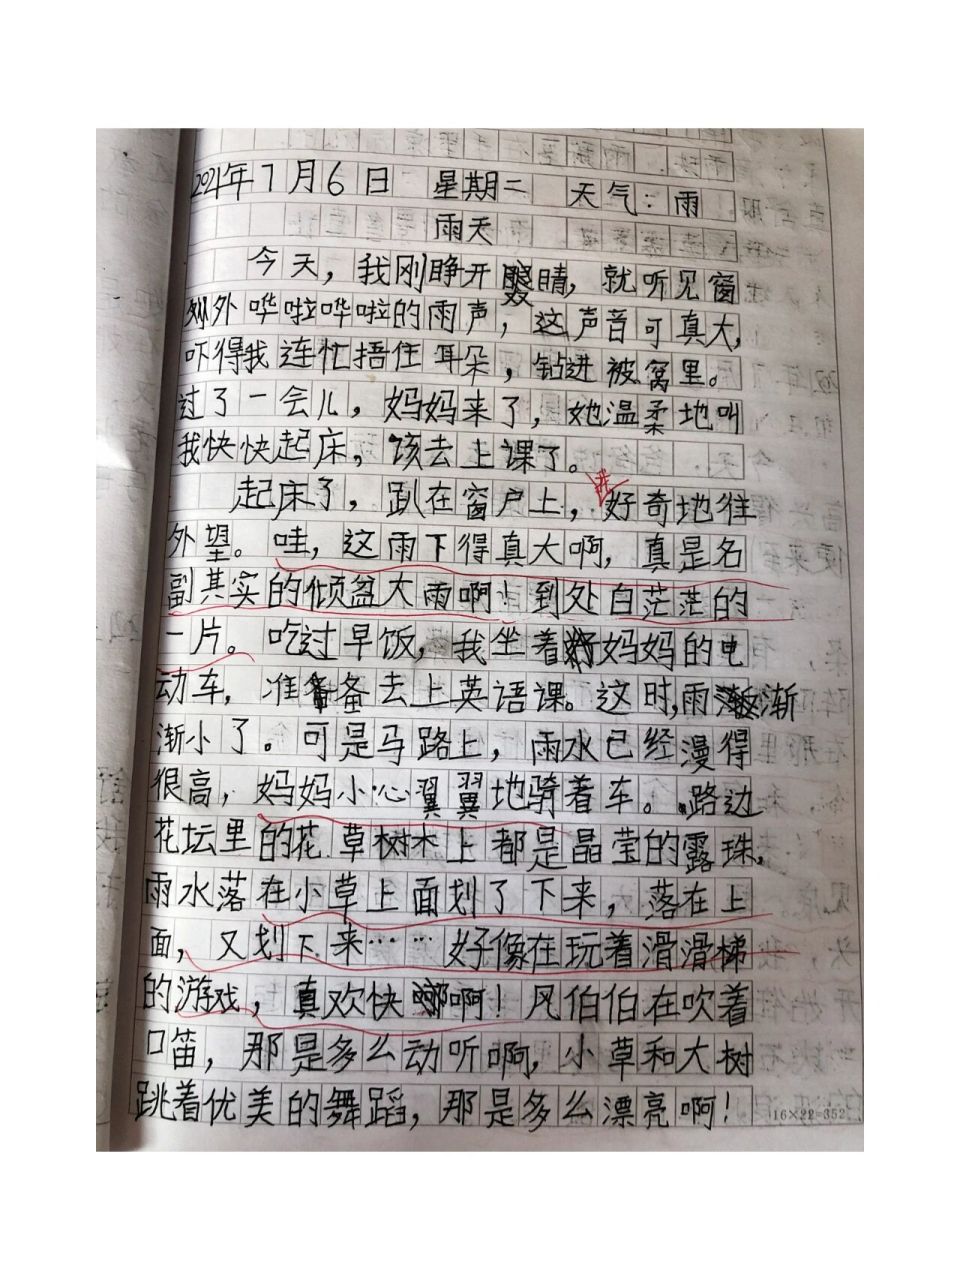 2021年7月6日 星期二 天气：雨
雨天
今天，我刚睁开眼睛，就听见窗
外哗啦哗啦的雨声，这声音可真大，
吓得我连忙捂住耳朵，钻进被窝里。
过了一会儿，妈妈来了，她温柔地叫
我快快起床，该去上课了。
起床了，趴在窗户上，好奇地往
外望。哇，这雨下得真大啊，真是名
副其实的倾盆大雨啊！到处白茫茫的
一片。吃过早饭，我坐着妈妈的电
动车，准备去上英语课。这时，雨渐
渐小了。可是马路上，雨水已经漫得
很高，妈妈小心翼翼地骑着车。路边
花坛里的花草树木上都是晶莹的露珠，
雨水落在小草上面划了下来，落在上
面，又划下来……好像在玩着滑滑梯
的游戏，真欢快啊！风伯伯在吹着
口笛，那是多么动听啊，小草和大树
跳着优美的舞蹈，那是多么漂亮啊！
16×22=352